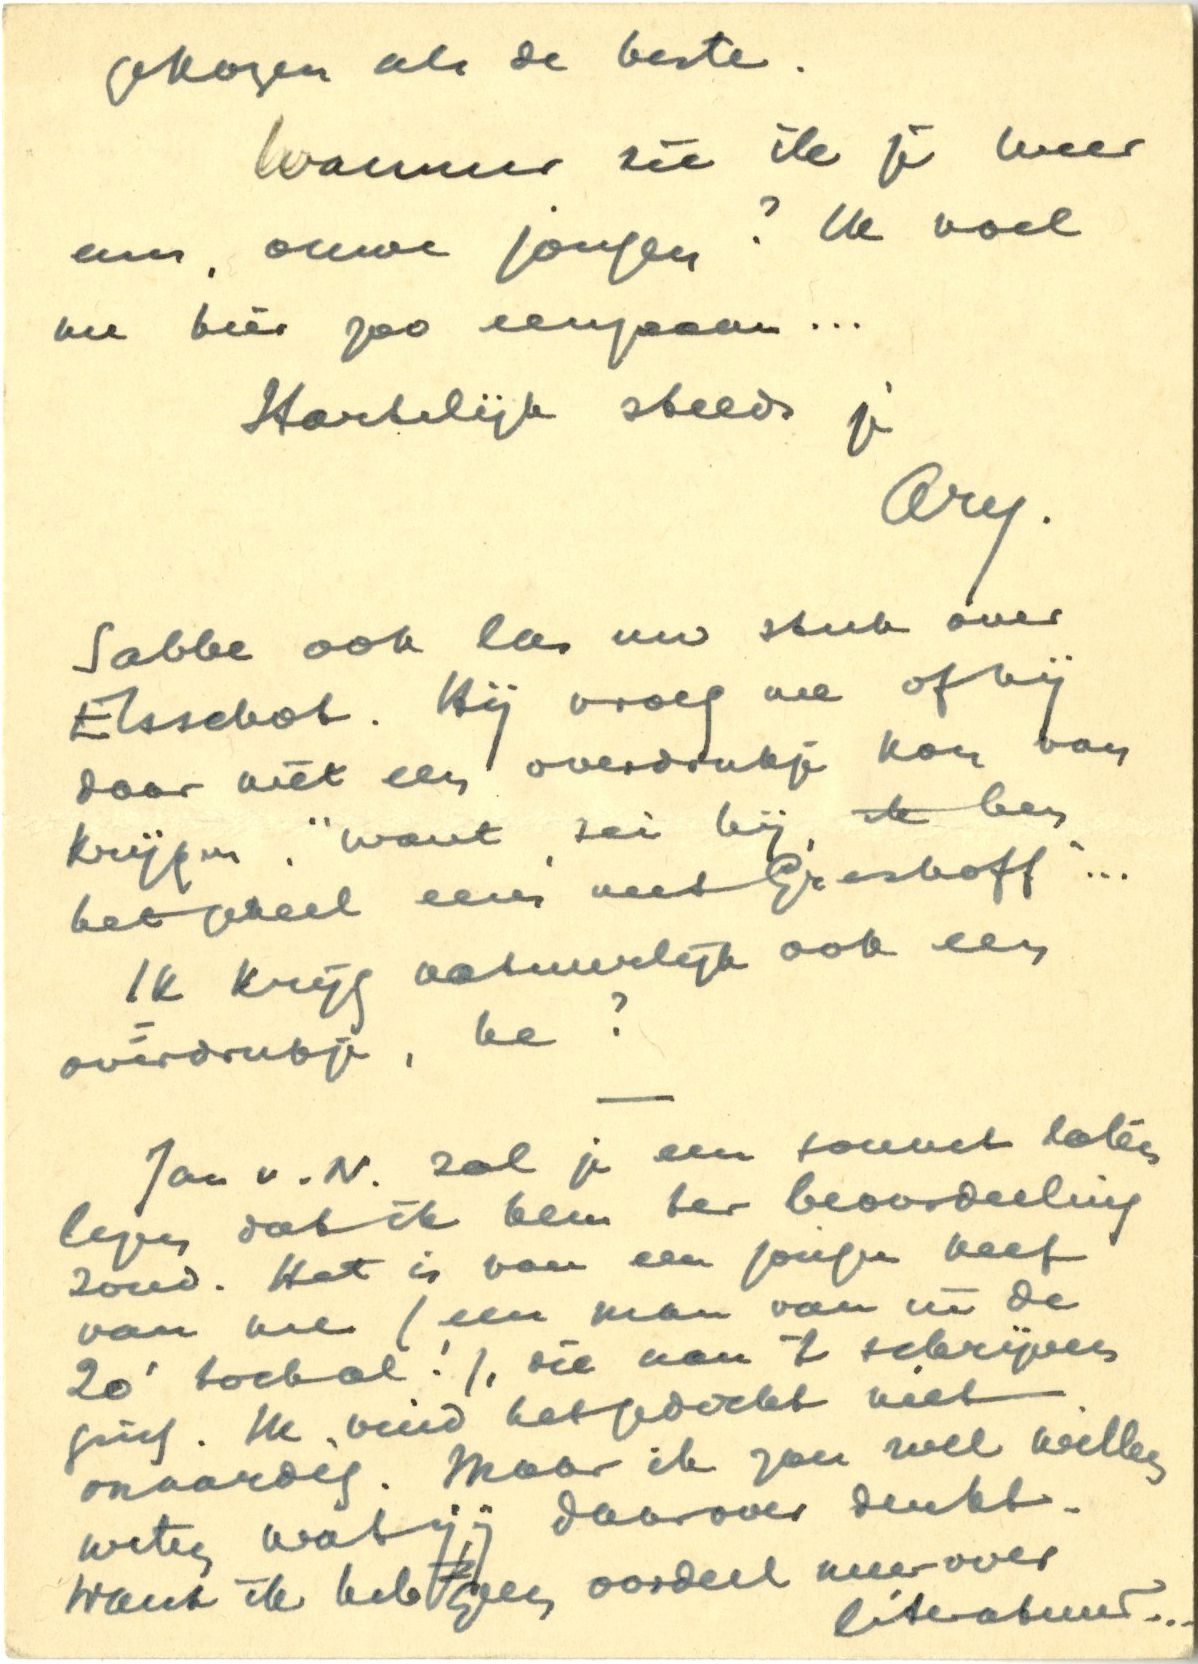 gekozen als de beste.
Wanneer zie ik je weer
eens, ouwe jongen? Ik voel
me hier zoo eenzaam...
Hartelijk steeds je
Ary.
Sabbe ook las uw stuk over
Elsschot. Hij vroeg me of hij
daar niet een overdrukje kon van
krijgen, "want, zei hij, ik ben
het geheel eens met Greshoff"...
Ik krijg natuurlijk ook een
overdrukje, he?
Jan v. N. zal je een sonnet laten
lezen dat ik hem ter beoordeeling
zond. Het is van een jongen neef
van me (een man van in de
20 toch al!), die aan 't schrijven
ging. Ik vind het gedicht niet
onaardig. Maar ik zou wel willen
weten wat jij daarover denkt.
Want ik heb geen oordeel meer over
literatuur...